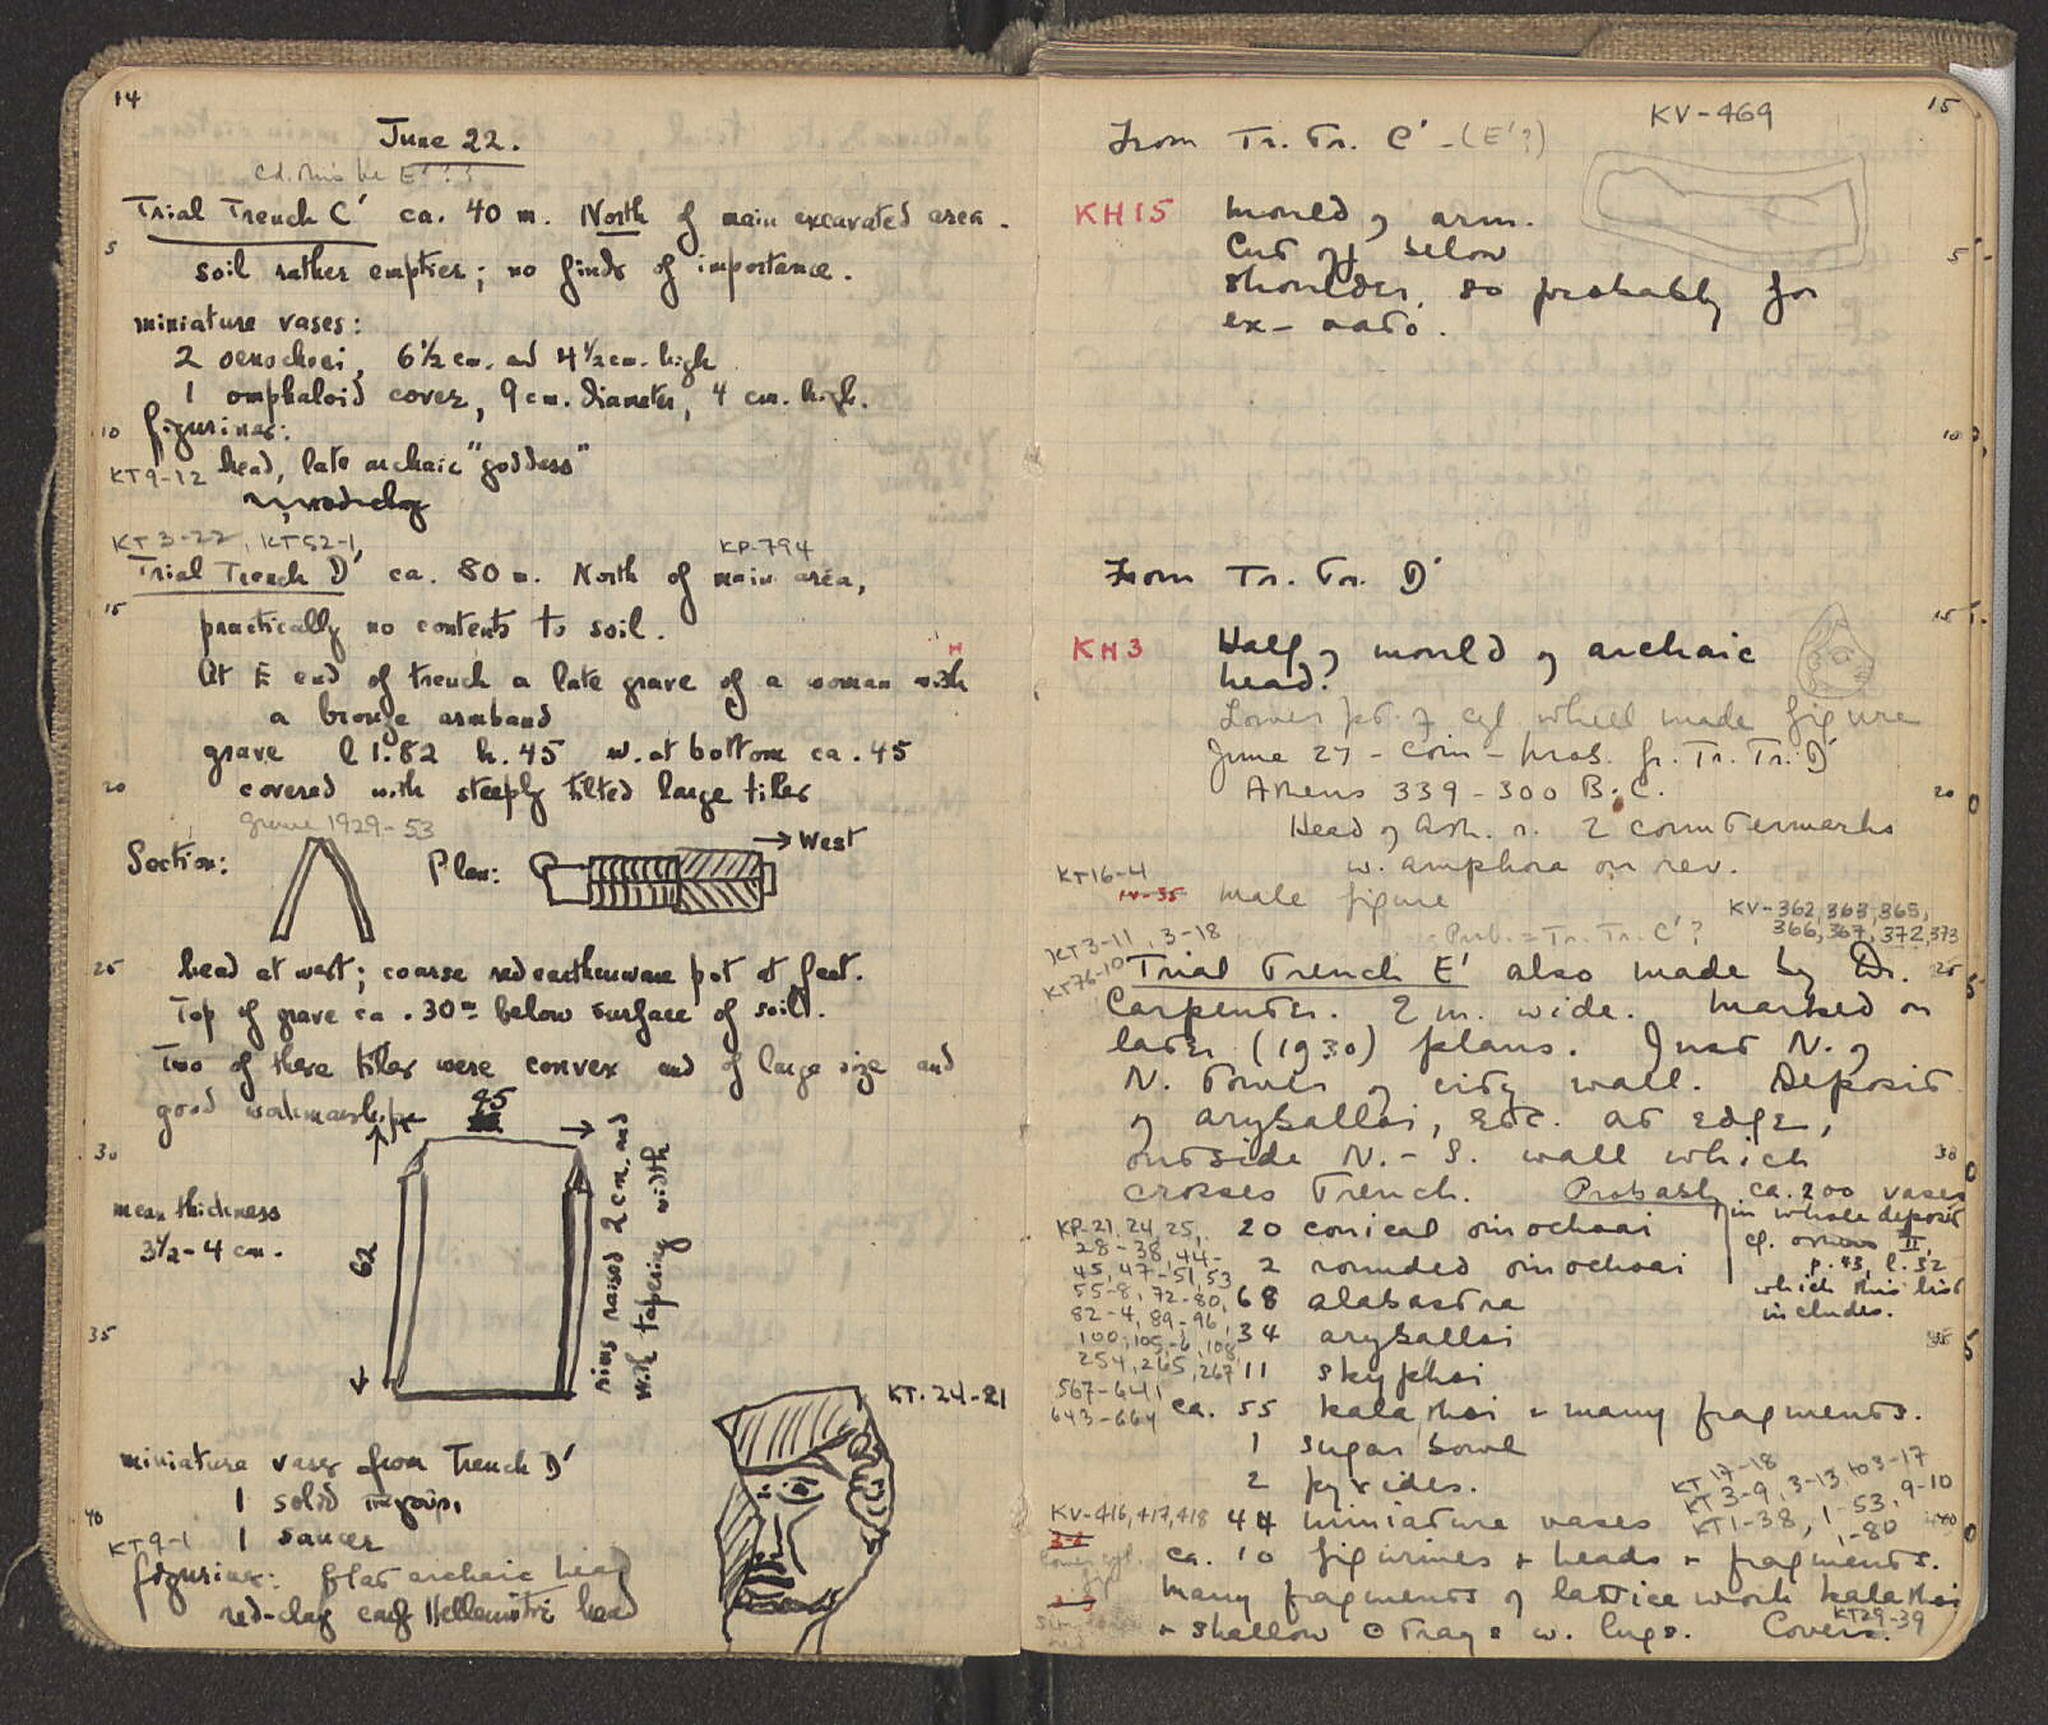 14
June 22.
cd. this be E'??
Trial Trench C' ca. 40 m. North of main excavated area.
5
soil rather emptier; no finds of importance.
miniature vases:
2 oenochoei, 6½ cm. and 4½ cm. high
1 omphaloid cover, 9 cm. diameter, 4 cm. high.
10 figurines:
KT9-12 head, late archaic "goddess"
KT3-22, KT52-1,
KP-794
Trial Trench D' ca. 80 m. North of main area,
15 practically no contents to soil.
H
At E end of trench a late grave of a woman with
a bronze armband
grave l 1.82 h. 45 w. at bottom ca. 45
20 covered with steeply tilted large tiles
grave 1929-53
Section: Plan: → West
25 head at west; coarse red earthenware pot at feet.
Top of grave ca .30m below surface of soil.
Two of these tiles were convex and of large size and
good workmanship
45
30
mean thickness
3½-4 cm.
62
rims raised 2 cm. and
with tapering width
35
KT-24-21
miniature vases from Trench D'
1 solid
40 1 saucer
KT9-1
figurines: flat archaic head
red-clay early Hellenistic head
15
KV-469
From Tr. Tr. C' - (E'?)
KH15 Mould of arm.
Cut off below 5
shoulder, so probably for
ex-voto.
10
From Tr. Tr. D'
15
KH3 Half of mould of archaic
head?
Lower pt. of cyl wheel made figure
June 27 - coin - prob. fr. Tr. Tr. D'
Athens 339-300 B.C. 20
Head of Ath. r. 2 countermarks
w. amphora on rev.
KT16-4
IV-35 male figure
KV-362, 363, 365,
366, 367, 372, 373
- Prob. = Tr. Tr. C'?
KT3-11, 3-18
KT76-10
Trial Trench E' also made by Dr. 25
Carpenter. 2 m. wide. Marked on
later (1930) plans. Just N. of
N. tower of city wall. Deposit
of aryballoi, etc. at edge,
outside N.-S. wall which 30
crosses trench. Probably ca. 200 vases
in whole deposit
cf. II,
p. 43, l. 32
which this list
includes.
KP-21, 24, 25,
28-38, 44-
45, 47-51, 53
55-8, 72-80,
82-4, 89-96,
100, 105-6, 108
254, 265, 267
567-641
643-664
20 conical oinochoai
2 rounded oinochoai
68 alabastra
34 aryballoi 35
11 skyphoi
ca. 55 kalathoi + many fragments.
1 sugar bowl
2 pyxides.
KT 17-18
KT 3-9, 3-13, 103-17
KT1-38, 1-53, 9-10
1-80
KV-416, 417, 418 44 miniature vases 40
ca. 10 figurines + heads + fragments.
many fragments of lattice work kalathoi
+ shallow ⊙ trays w. lugs. Covers.
KT29-39